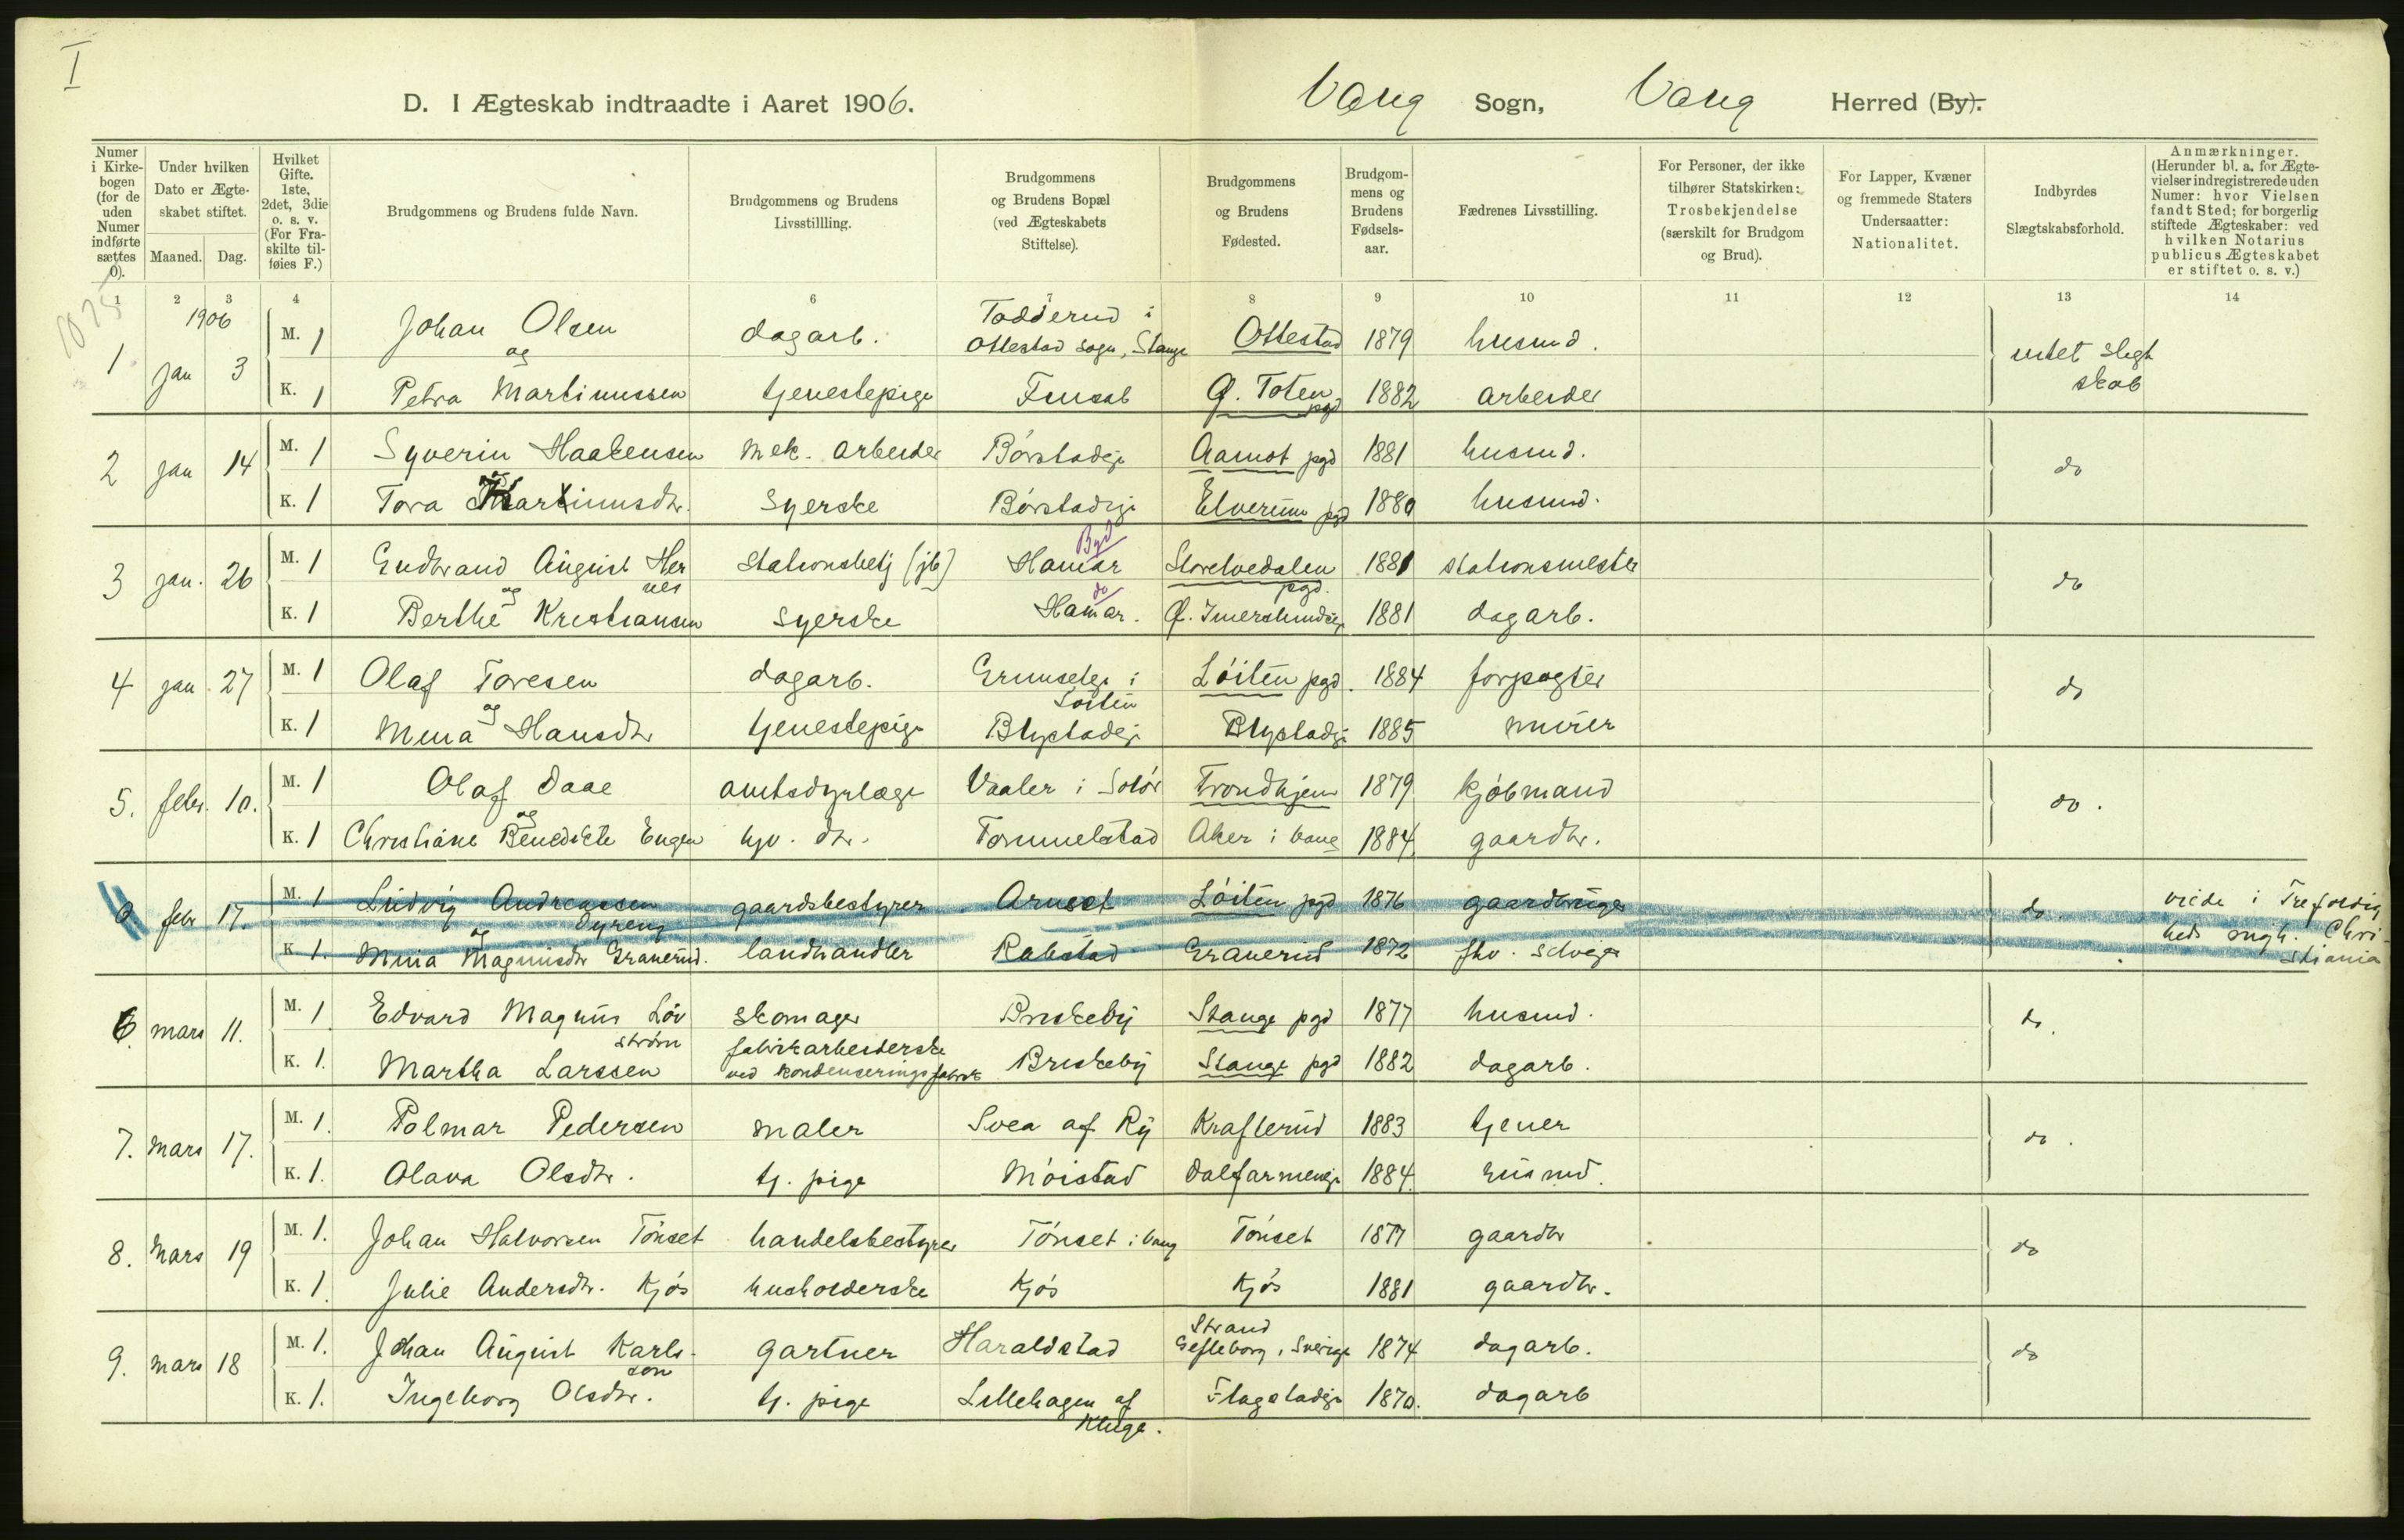 I
D. I Ægteskab indtraadte i Aaret 1906. Vang Sogn, Vang Herred (By).
Numer i Kirke-bogen (for de uden Numer indførte sættes 0).
Under hvilken Dato er Ægte-skabet stiftet.
Maaned. Dag.
Hvilket Gifte. 1ste, 2det, 3die o. s. v. (For Fra-skilte til-føies F.)
Brudgommens og Brudens fulde Navn.
Brudgommens og Brudens Livsstillling.
Brudgommens og Brudens Bopæl (ved Ægteskabets Stiftelse).
Brudgommens og Brudens Fødested.
Brudgom-mens og Brudens Fødsels-aar.
Fædrenes Livsstilling.
For Personer, der ikke tilhører Statskirken: Trosbekjendelse (særskilt for Brudgom og Brud).
For Lapper, Kvæner og fremmede Staters Undersaatter: Nationalitet.
Indbyrdes Slægtskabsforhold.
Anmærkninger. (Herunder bl. a. for Ægte-vielser indregistrerede uden Numer: hvor Vielsen fandt Sted; for borgerlig stiftede Ægteskaber: ved hvilken Notarius publicus Ægteskabet er stiftet o. s. v.)
1 2 3 4 6 7 8 9 10 11 12 13 14
1906
1 jan 3 M. 1 Johan Olsen dagarb. Todderud i Ottestad sogn, Stange Ottestad 1879 husmd. intet slegt skab
og
K. 1 Petra Martinussen tjenestepige Furnab Ø. Toten pgd 1882 arbeider
2 jan 14 M. 1 Syverin Haakensen mek. arbeider Børstadeje Aamot pgd 1881 husmd. do
og
K. 1 Tora Martinusdtr. syerske Børstadeje Elverum pgd 1880 husmd.
3 jan. 26 M. 1 Gudbrand August Hernes stationsbetj (jb) Hamar Byd Storelvedalen pgd. 1881 stationsmester do
og
K. 1 Berthe Kristiansen syerske Hamar. do Ø. 1881 dagarb.
4 jan. 27 M. 1 Olaf Toresen dagarb. Grunseteje i Løiten Løiten pgd. 1884 forpagter do
og
K. 1 Mina Hansdtr tjenestepige Blystadeje Blystadeje 1885 murer
5. febr. 10. M. 1 Olaf Daae amtsdyrlæge Vaaler i Solør Trondhjem 1879 kjøbmand do.
og
K. 1 Christiane Benedikte Engen hjv. dtr. Tommelstad Aker i Vang 1884. gaardbr.
0. febr 17. M. 1 Ludvig Andreassen Dyreng gaardsbestyrer Arnset Løiten pgd 1876 gaardbruger do viede i Trefoldig heds mgh. Christiania
og
K. 1. Mina Magnusdtr Granerud. landhandler Rabstad Granerud 1872 fhv. selveier
6. mars 11. M. 1. Edvard Magnus Løvstrøm skomager Briskeby Stange pgd 1877 husmd. do.
K. 1. Martha Larssen fabrikarbeiderske ved kondenseringsfabrik Briskeby Stange pgd 1882 dagarb.
7. mars 17. M. 1. Palmar Pedersen maler Svea af Ry Krafterud 1883 tjener do.
K. 1. Olava Olsdtr. tj. pige Møistad Dalfarmeneje 1884. husmd.
8. mars 19 M. 1. Johan Halvorsen Tønset handelsbestyrer Tønset i Vang Tønset 1877 gaardbr do
K. 1. Julie Andersdtr. Kjøs husholderske Kjøs Kjøs 1881 gaardbr.
9. mars 18 M. 1. Johan August Karlsson gartner Haraldstad Strand Gefleborg, Sverige 1874 dagarb. do
K. 1. Ingeborg Olsdtr. tj. pige Lillehagen af Kluge. Flagstadeje 1870. dagarb